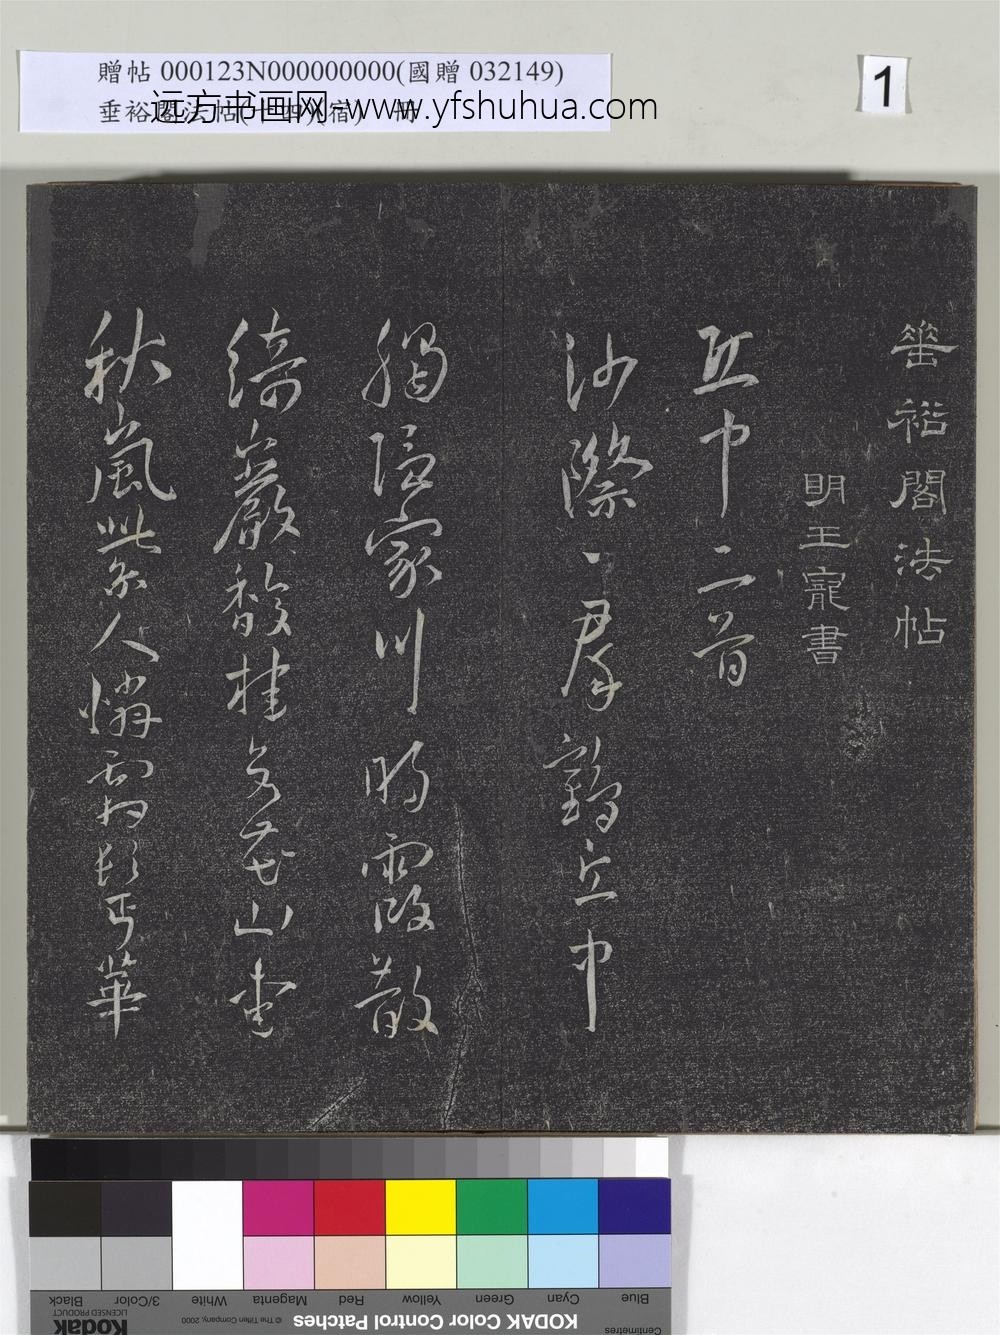 贈帖 000123N000000000(國贈 032149)
垂裕閣法帖(十四)(宿) 冊
远方书画网-www.yfshuhua.com
1
垂裕閣法帖
明王寵書
丘中二首
沙際一羣鶴丘中
隱家川明霞散
綺巖馥桂
花山
秋嵐紫人憐
華
Blue
Cyan
Green
Yellow
Red
Magenta
White
3/Color
Black
Centimetres
KODAK Color Control Patches
© The Tiffen Company, 2000
Kodak
LICENSED PRODUCT